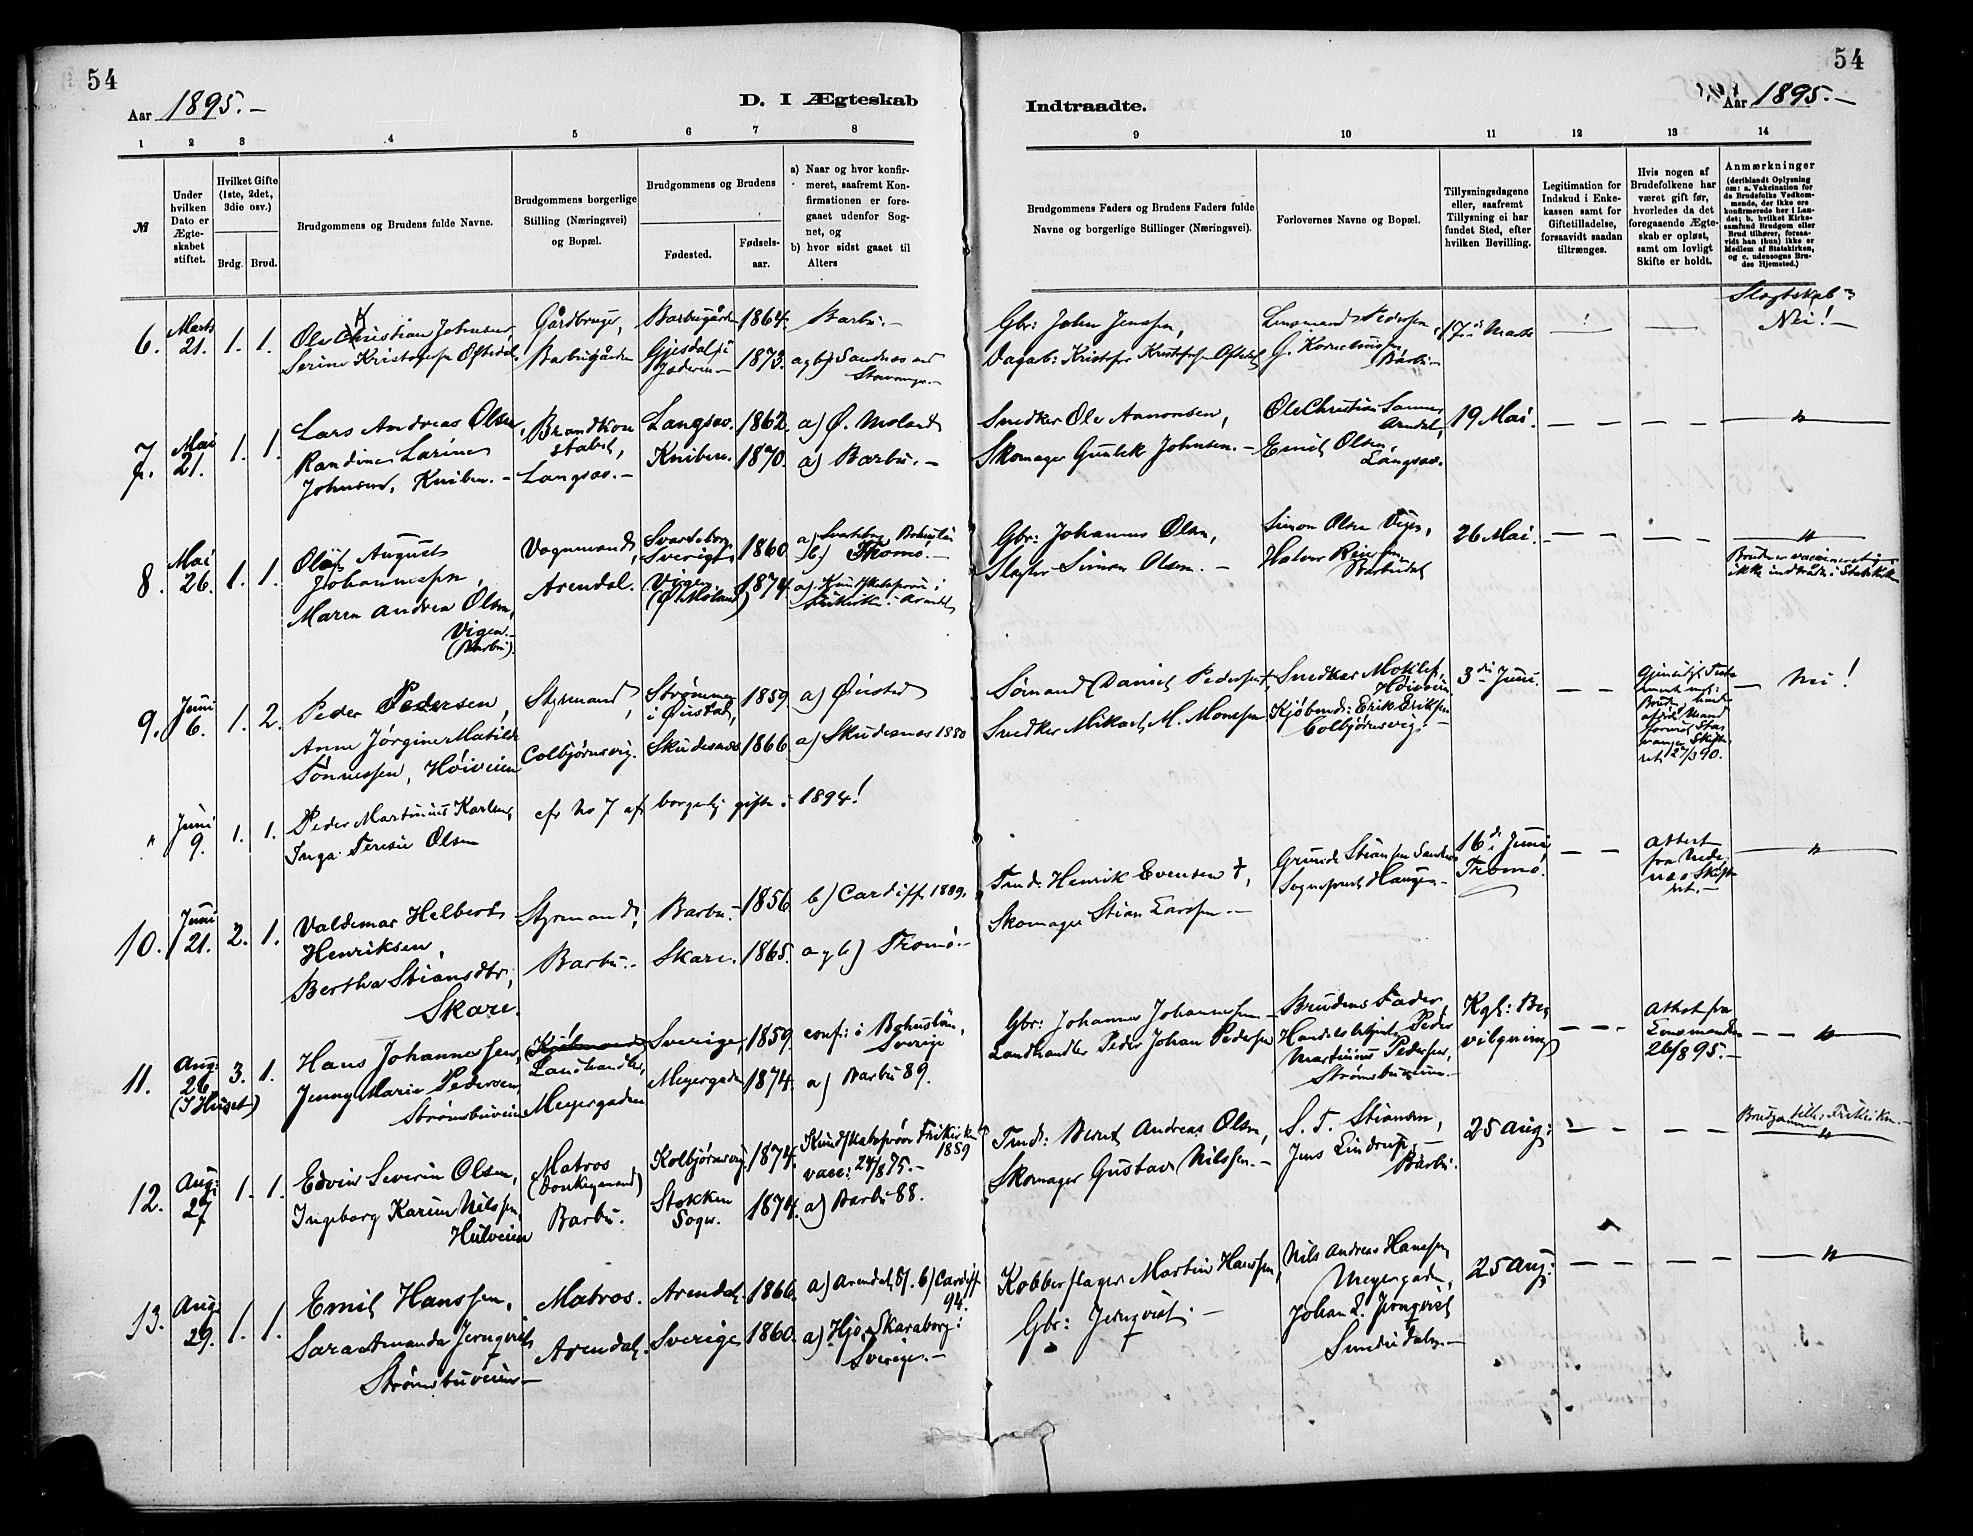 54
Aar 1895.-
D. I Ægteskab
1 2 3 4 5 6 7 8
№
Under hvilken Dato er Ægteskabet stiftet.
Hvilket Gifte (1ste, 2det, 3die osv.)
Brdg. Brud.
Brudgommens og Brudens fulde Navne.
Brudgommens borgerlige Stilling (Næringsvei) og Bopæl.
Brudgommens og Brudens
Fødested.
Fødselsaar.
a) Naar og hvor konfirmeret, saafremt Konfirmationen er foregaaet udenfor Sognet, og
b) hvor sidst gaaet til Alters
54
Indtraadte.
Aar 1895.-
9 10 11 12 13 14
Brudgommens Faders og Brudens Faders fulde Navne og borgerlige Stillinger (Næringsvei).
Forlovernes Navne og Bopæl.
Tillysningsdagene eller, saafremt Tillysning ei har fundet Sted, efter hvilken Bevilling.
Legitimation for Indskud i Enkekassen samt for Giftetilladelse, forsaavidt saadan tiltrænges.
Hvis nogen af Brudefolkene har været gift før, hvorledes da det foregaaende Ægteskab er opløst, samt om lovligt Skifte er holdt.
Anmærkninger
(deriblandt Oplysning om: a. Vakcination for de Brudefolks Vedkommende, der ikke ere konfirmerede her i Landet; b. hvilket Kirkesamfund Brudgom eller Brud tilhører, forsaavidt han (hun) ikke er Medlem af Statskirken, og c. udensogns Brudes Hjemsted.)
6. Marts 21. 1. 1.
Ole Christian Johnsen
Serine Kristofersen Oftedal
Gårdbruger,
Barbugården
Barbugården 1864. Barbu.-
Gjesdal i Jæderen- 1873. a og b) Sandnæs ved Stavanger.-
Gbr: John Jensen,
Kristofer Kristofersen Oftedal
Lensmand Pedersen,
G. Korneliussen Barbu-
17de Marts
Slægtskab?
Nei!-
7. Mai 21. 1. 1.
Lars Andreas Olsen,
Randine Larine
Johnsen, Kniben.-
Langsæv.-
Langsæv. 1862. a) Ø. Moland
Kniben. 1870. a) Barbu.-
Snedker Ole Aanonsen,
Skomager Gunlek Johnsen.-
Ole Christian
Arendal,
Emil Olsen,
Langsæv.
19 Mai.
8. Mai 26. 1. 1.
Olaf August
Johannesen,
Maren Andrea Olsen,
Vigen.-
(Barbu).
Vognmand,
Arendal.
Sverige 1860. b) Tromø.-
Vigen (Ø. Moland) 1874.
Frikirke i Arendal
Gbr: Johannes Olsen,
Slagter Simon Olsen.-
Simon Olsen Vigen,
Halvor
Barbudal
26 Mai.
9. Juni 6. 1. 2.
Peder Pedersen,
Anne Jørgine Matilde
Tønnessen, Høiveien
Styrmand,
Colbjørnsvig.
Strømmen i Øiestad, 1859 a) Øiestad
Skudesnæs 1866 a) Skudesnæs 1880
Sømand Daniel Pedersen †,
Snedker Mikael M. Monsen
Snedker
Høiveien
Kjøbmd: Erik Eriksen
Colbjørnsvig.
3die Juni.
Nei!
" Juni 9. 1. 1.
Peder Martinius Karlsen,
Inga Teresie Olsen
cfr No 7 af borgerlig gifte i 1894!
10. Juni 21. 2. 1.
Valdemar Helbert
Henriksen,
Bertha Stiansdtr,
Skare.
Styrmand,
Barbu.-
Barbu. 1856 b) Cardiff 1889.
Skare. 1865. a og b) Tromø.-
Tmd: Henrik Evensen †,
Skomager Stian Larsen.-
Sogneprest Haugen-
16de Juni
Tromø.
Attest fra Nedenæs Skifteret.-
11. Aug. 26 (I Huset) 3. 1.
Hans Johannessen,
Jenny Marie Pedersen,
Strømsbuveien
Landhandler,
Meyergaden
Sverige, 1859. conf: i Bohuslän, Sverige
Meyergaden 1874. a) Barbu 89.
Gbr: Johannes Johannessen-
Landhandler Peder Johan Pedersen
Brudens Fader,
Handelsbetjent Peder
Martinius Pedersen,
Strømsbuveien.-
Kgl: Bevilgning
Attest fra Lensmanden 26/8 95.-
12. Aug: 27 1. 1.
Edvin Severin Olsen,
Ingeborg Karine Nilssen,
Hulveien
Matros
(Donkeymand)
Barbu.
Kolbjørnsvig 1874. Kundskabsprøve Frikirken 1889
vacc: 24/8 75.-
Stokken Sogn. 1874. a) Barbu 88.
Tmd: Bernt Andreas Olsen,
Skomager Gustav Nilssen.-
S. T. Stiansen,
Jens Lindrup,-
Barbu.
25 Aug:
Brudgommen tilh: Frikirken.-
13. Aug. 29. 1. 1.
Emil Hanssen,
Sara Amanda Jernqvist
Strømsbuveien-
Matros.
Arendal.
Arendal. 1866. a) Arendal, 81. b) Cardiff 94.
Sverige 1860. a) Hjo, Skaraborg i Sverige.-
Kobberslager Martin Hanssen,
Gbr: Jernqvist.-
Nils Andreas Hanssen,
Meyergaden,
Johan L. Jernqvist
25 Aug: